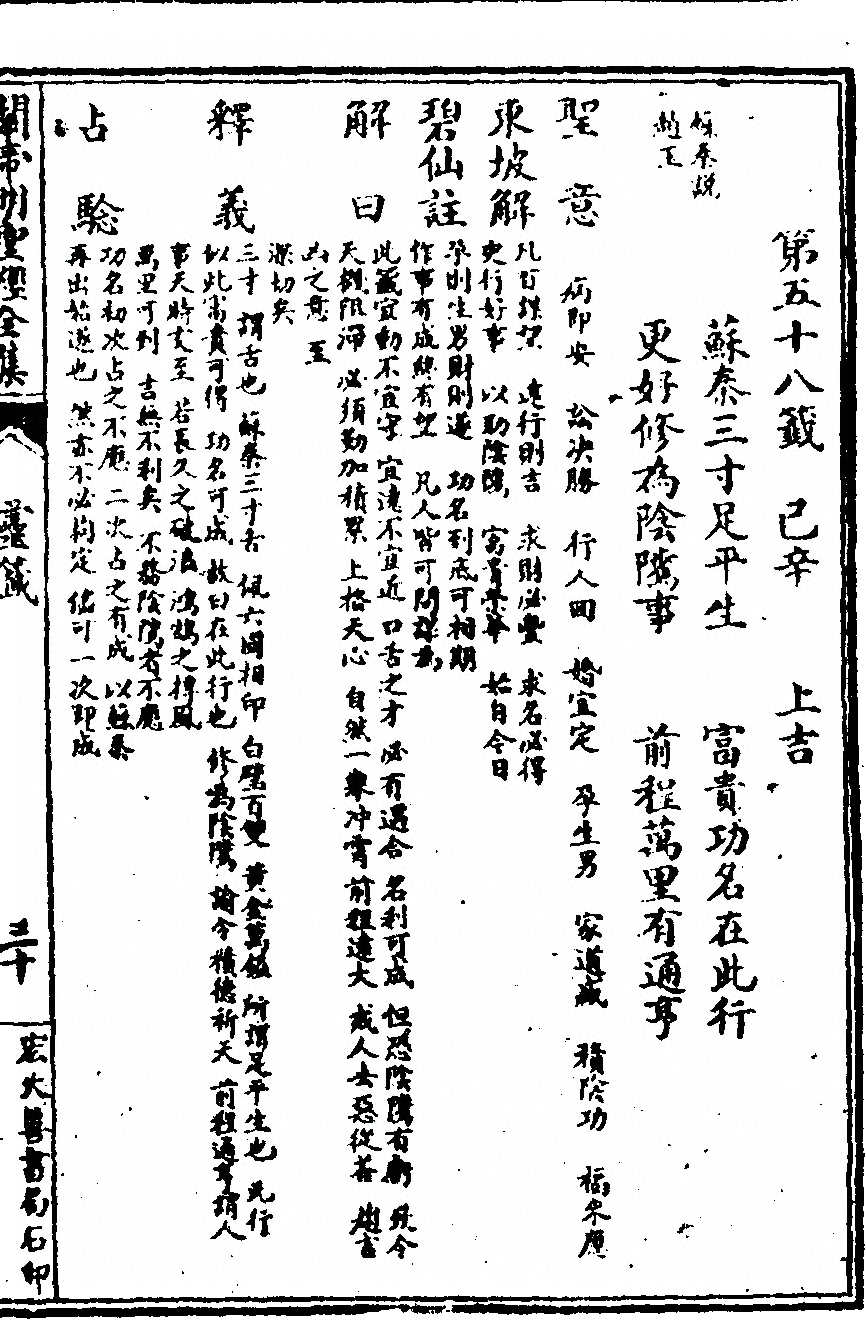 第五十八籤 己辛 上吉
蘇秦說
趙王
蘇秦三寸足平生 富貴功名在此行
更好修為陰隲事 前程萬里有通亨
聖意 病即安 訟決勝 行人回 婚宜定 孕生男 家道盛 積陰功 福來應
東坡解 凡百謀望 此行則吉 求財必豐 求名必得
更行好事 以助陰隲 富貴榮華 始自今日
碧仙註 孕則生男財則遂 功名到底可相期
作事有成終有望 凡人皆可問謀為
解曰 此籤宜動不宜守 宜遠不宜近 口舌之才 必有遇合 名利可成 但恐陰隲有虧 致令
天機阻滯 必須勤加積累 上格天心 自然一舉冲霄 前程遠大 戒人去惡從善 趨吉
凶之意 至
深切矣
釋義 三寸 謂舌也 蘇秦三寸舌 佩六國相印 白璧百雙 黃金萬鎰 所謂足平生也 此行
以此富貴可得 功名可成 故曰在此行也 修為陰隲 諭令積德祈天 前程通亨謂人
事天時支至 若長久之破浪 鴻鵠之摶風
萬里可到 吉無不利矣 不務陰隲者不應
占驗 功名初次占之不應 二次占之有成 以蘇秦
再出始遂也 然亦不必拘定 儘可一次即成
關帝明聖經全集
靈籤
五十
宏大善書局石印